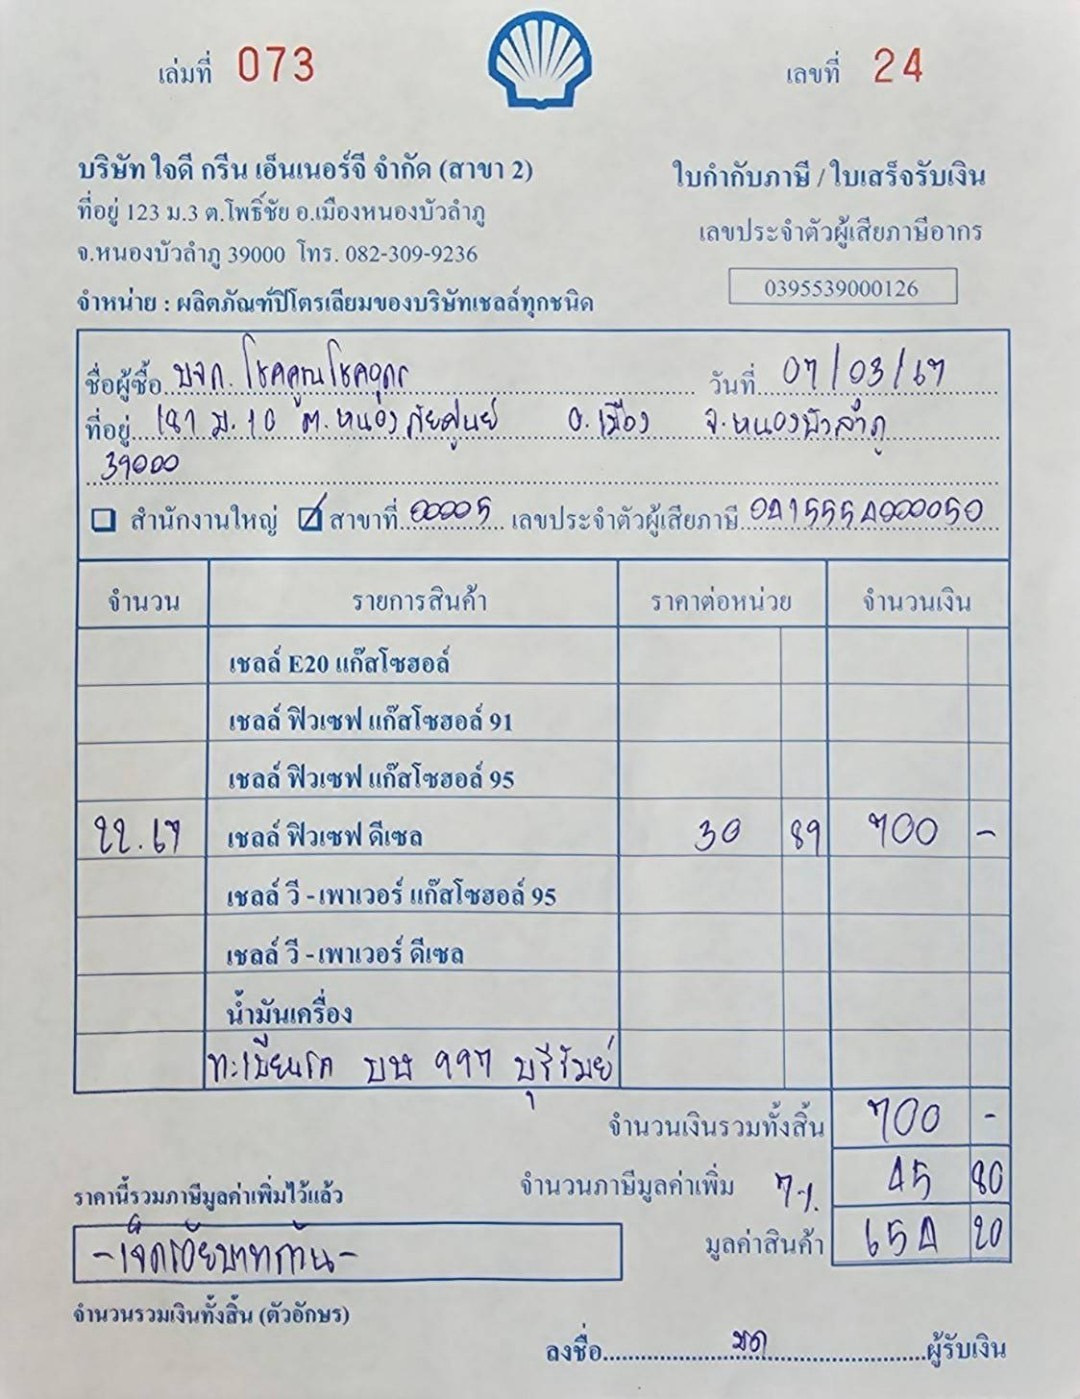 เล่มที่ 073
เลขที่ 24
บริษัท ใจดี กรีน เอ็นเนอร์จี จำกัด (สาขา 2)
ที่อยู่ 123 ม.3 ต.โพธิ์ชัย อ.เมืองหนองบัวลำภู
จ.หนองบัวลำภู 39000 โทร. 082-309-9236
จำหน่าย : ผลิตภัณฑ์ปิโตรเลียมของบริษัทเชลล์ทุกชนิด
ใบกำกับภาษี / ใบเสร็จรับเงิน
เลขประจำตัวผู้เสียภาษีอากร
0395539000126
ชื่อผู้ซื้อ บจก. โชคคูณโชคอุดร วันที่ 07/03/67
ที่อยู่ 187 ม.10 ต.หนองภัยศูนย์ อ.เมือง จ.หนองบัวลำภู
39000
สำนักงานใหญ่ สาขาที่ 00005 เลขประจำตัวผู้เสียภาษี 0415554000050
จำนวน รายการสินค้า ราคาต่อหน่วย จำนวนเงิน
เชลล์ E20 แก๊สโซฮอล์
เชลล์ ฟิวเซฟ แก๊สโซฮอล์ 91
เชลล์ ฟิวเซฟ แก๊สโซฮอล์ 95
22.67 เชลล์ ฟิวเซฟ ดีเซล 30 89 700 -
เชลล์ วี - เพาเวอร์ แก๊สโซฮอล์ 95
เชลล์ วี - เพาเวอร์ ดีเซล
น้ำมันเครื่อง
ทะเบียนรถ บษ 997 บุรีรัมย์
จำนวนเงินรวมทั้งสิ้น 700 -
จำนวนภาษีมูลค่าเพิ่ม 7% 45 80
มูลค่าสินค้า 654 20
ราคานี้รวมภาษีมูลค่าเพิ่มไว้แล้ว
-เจ็ดร้อยบาทถ้วน-
จำนวนรวมเงินทั้งสิ้น (ตัวอักษร)
ลงชื่อ ผู้รับเงิน